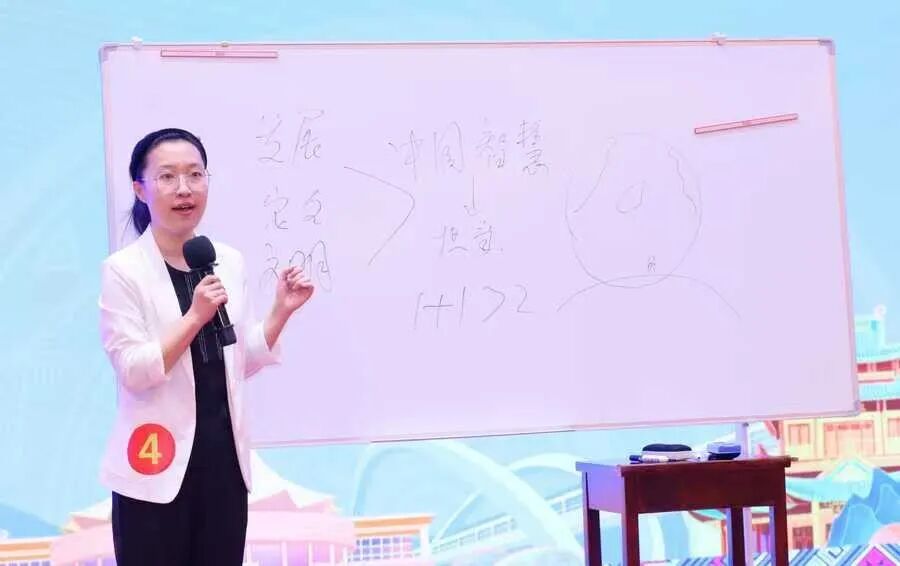 发展
安全
文明
中国智慧
1+1>2
4